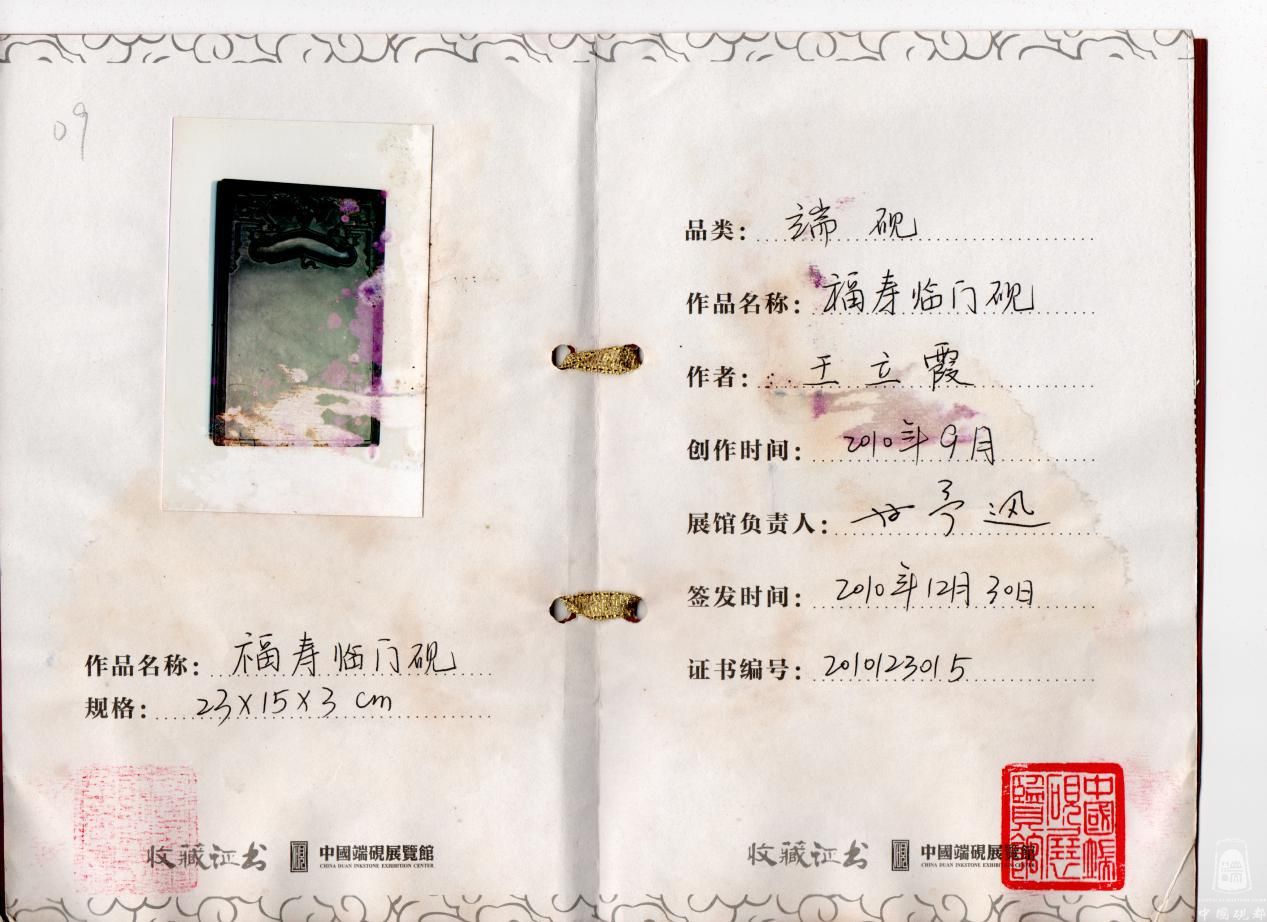 09
作品名称：福寿临门砚
规格：23×15×3 cm
收藏证书
中國端硯展覽館
CHINA DUAN INKSTONE EXHIBITION CENTER
品类：端砚
作品名称：福寿临门砚
作者：王立霞
创作时间：2010年9月
展馆负责人：
签发时间：2010年12月30日
证书编号：2010123015
收藏证书
中國端硯展覽館
CHINA DUAN INKSTONE EXHIBITION CENTER
中國端硯展覽館
中国砚都